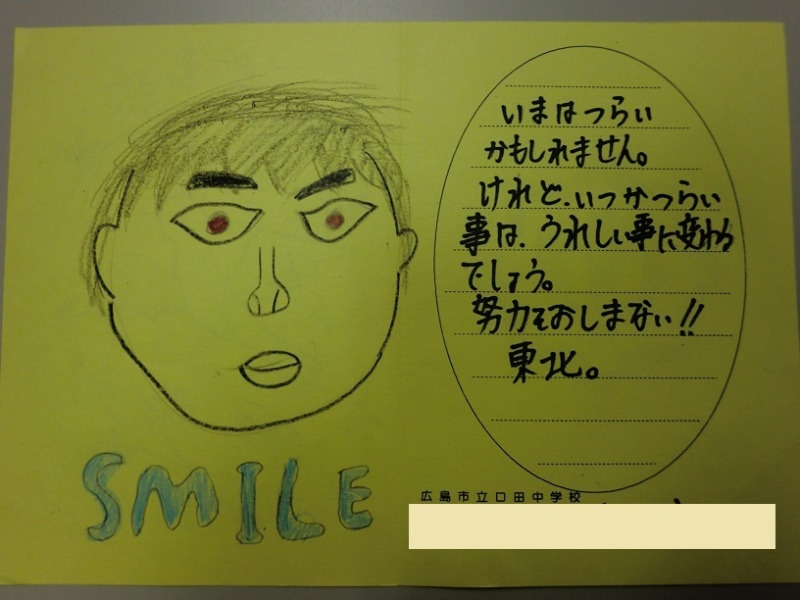 いまはつらい
かもしれません。
けれど、いつかつらい
事は、うれしい事に変わる
でしょう。
努力をおしまない!!
東北。
SMILE
広島市立口田中学校